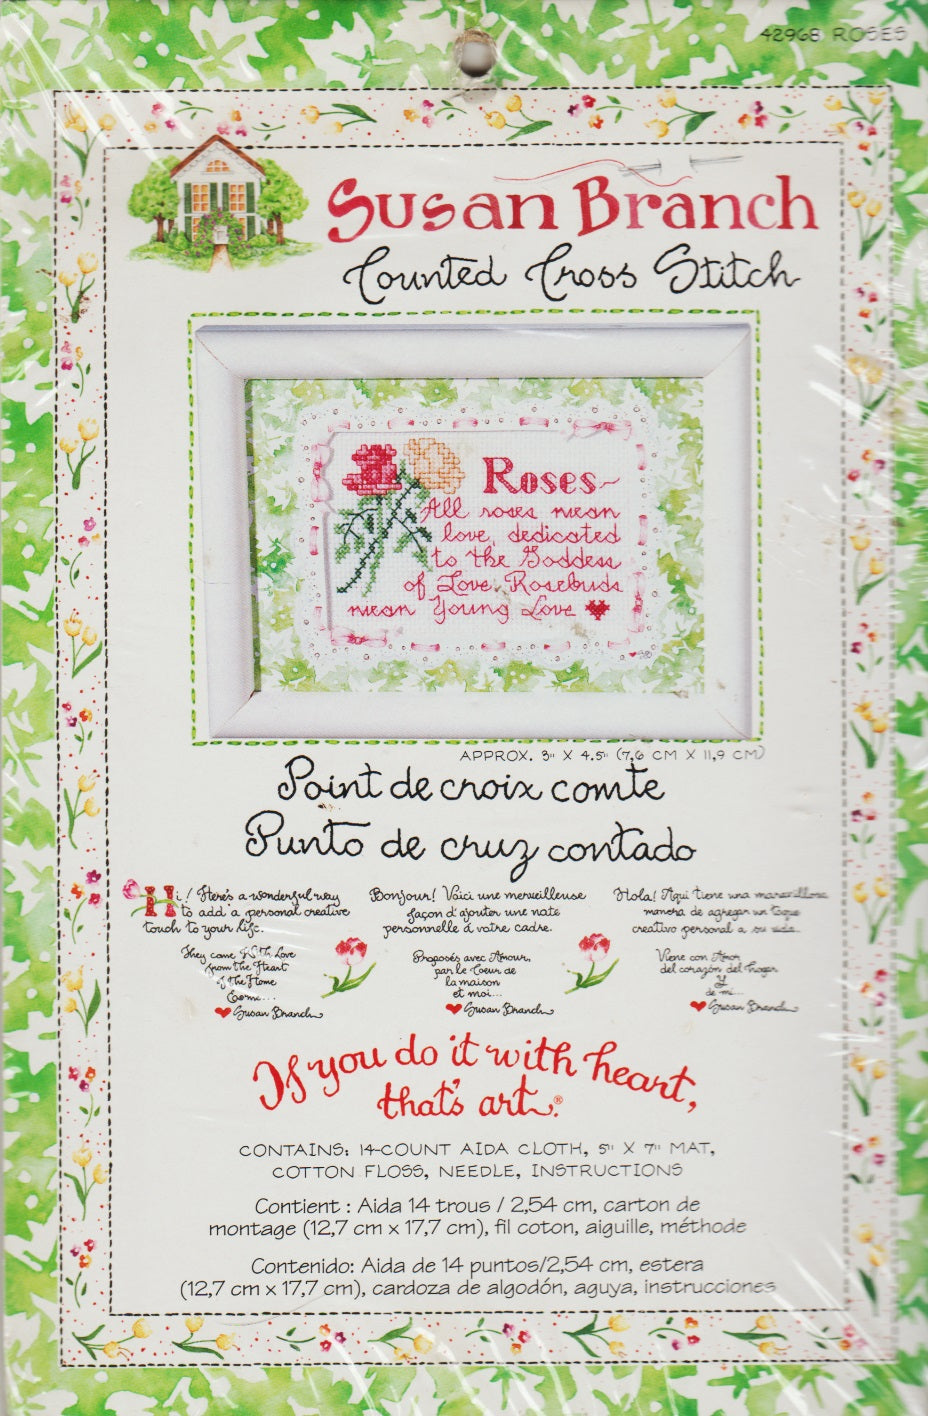 42968 ROSES
Susan Branch
Counted Cross Stitch
Roses~
All roses mean
love, dedicated
to the Goddess
of Love. Rosebuds
mean Young Love
APPROX. 3" X 4.5" (7,6 CM X 11,9 CM)
Point de croix comte
Punto de cruz contado
Hi! Here's a wonderful way
to add a personal creative
touch to your life.
They come With Love
from the Heart
of the Home
& me...
Susan Branch
Bonjour! Voici une merveilleuse
façon d'ajouter une note
personnelle à votre cadre.
Proposés avec Amour,
par le Coeur de
la maison
et moi...
Susan Branch
Hola! Aqui tiene una maravillosa
manera de agregar un toque
creativo personal a su vida.
Viene con Amor
del corazón del hogar
y
de mi...
Susan Branch
If you do it with heart,
that's art.®
CONTAINS: 14-COUNT AIDA CLOTH, 5" X 7" MAT,
COTTON FLOSS, NEEDLE, INSTRUCTIONS
Contient : Aida 14 trous / 2,54 cm, carton de
montage (12,7 cm x 17,7 cm), fil coton, aiguille, méthode
Contenido: Aida de 14 puntos/2,54 cm, estera
(12,7 cm x 17,7 cm), cardoza de algodón, aguya, instrucciones